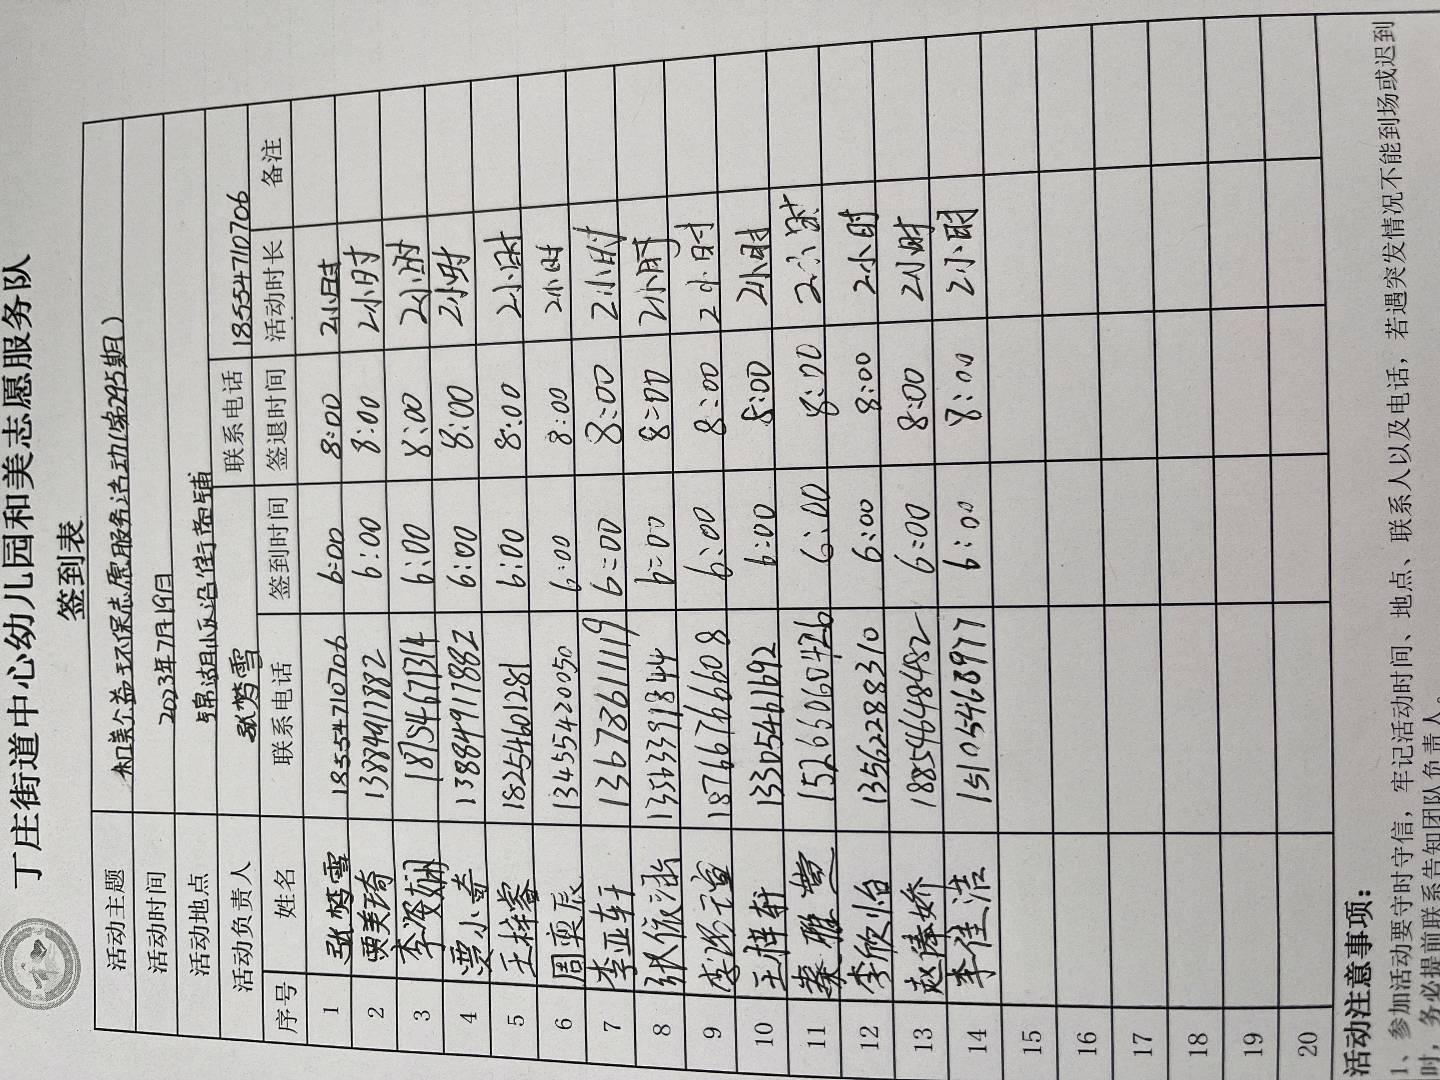 丁庄街道中心幼儿园和美志愿服务队
签到表
活动主题 和美公益环保志愿服务活动(第295期)
活动时间 2023年7月19日
活动地点 锦湖小区沿街商铺
活动负责人 张梦雪 联系电话 18554710706
序号 姓名 联系电话 签到时间 签退时间 活动时长 备注
1 张梦雪 18554710706 6:00 8:00 2小时
2 贾美琦 13884917882 6:00 8:00 2小时
3 李滢娴 18754671314 6:00 8:00 2小时
4 贾小奇 13884917882 6:00 8:00 2小时
5 王梓睿 18254601281 6:00 8:00 2小时
6 周奕辰 13455420050 6:00 8:00 2小时
7 李亚轩 13673861119 6:00 8:00 2小时
8 张依涵 13563391844 6:00 8:00 2小时
9 李 18766766608 6:00 8:00 2小时
10 王梓轩 13305461692 6:00 8:00 2小时
11 秦雅萱 15266060426 6:00 8:00 2小时
12 李欣怡 13562288310 6:00 8:00 2小时
13 赵偀娇 18854648482 6:00 8:00 2小时
14 李佳浩 15105468977 6:00 8:00 2小时
15
16
17
18
19
20
活动注意事项：
1、参加活动要守时守信，牢记活动时间、地点、联系人以及电话，若遇突发情况不能到场或迟到
时，务必提前联系告知团队负责人。